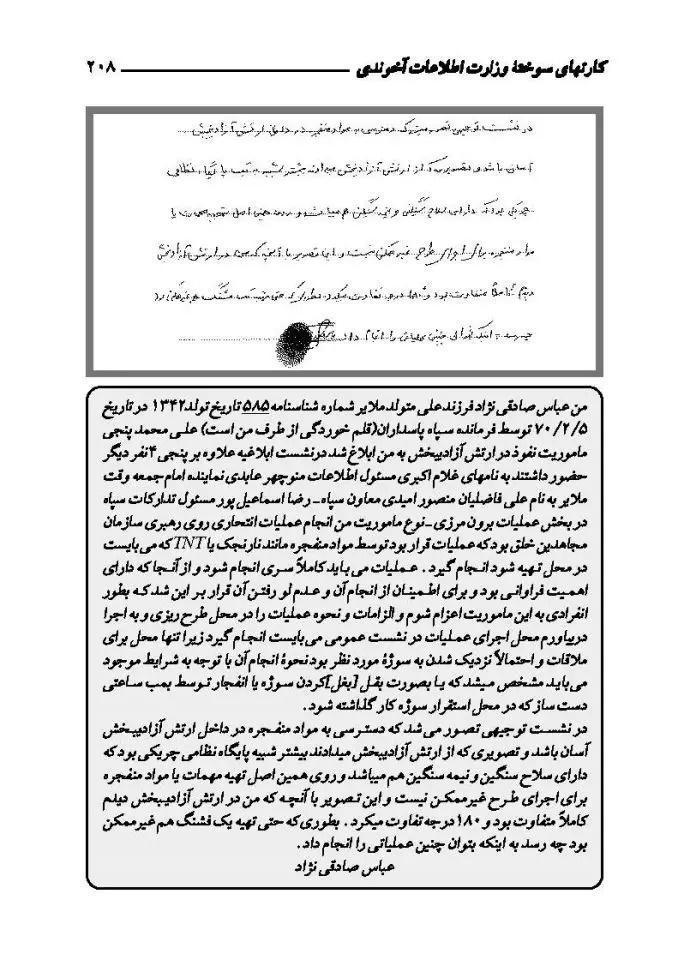 کارتهای سوختهٔ وزارت اطلاعات آخوندی ۲۰۸
در نشست توجیهی تصور میشد که دسترسی به مواد منفجره در داخل ارتش آزادیبخش
آسان باشد و تصویری که از ارتش آزادیبخش میدادند بیشتر شبیه به پایگاه نظامی
چریکی بود که دارای سلاح سنگین و نیمه سنگین هم میباشد و روی همین اصل تهیه مهمات یا
مواد منفجره برای اجرای طرح غیر ممکن نیست و این تصویر با آنچه که من در ارتش آزادیبخش
دیدم کاملاً متفاوت بود و ۱۸۰ درجه تفاوت میکرد بطوری که حتی تهیه یک فشنگ هم غیرممکن بود
چه رسد به اینکه بتوان چنین عملیاتی را انجام داد
من عباس صادقی نژاد فرزند علی متولد ملایر شماره شناسنامه ۵۸۵ تاریخ تولد ۱۳۴۲ در تاریخ
۷۰/۲/۵ توسط فرمانده سپاه پاسداران(قلم خوردگی از طرف من است) علی محمد پنجی
ماموریت نفوذ در ارتش آزادیبخش به من ابلاغ شد درنشست ابلاغیه علاوه بر پنجی ۴ نفر دیگر
حضور داشتند به نامهای غلام اکبری مسئول اطلاعات منوچهر عابدی نماینده امام جمعه وقت
ملایر به نام علی فاضلیان منصور امیدی معاون سپاه ـ رضا اسماعیل پور مسئول تدارکات سپاه
در بخش عملیات برون مرزی ـ نوع ماموریت من انجام عملیات انتحاری روی رهبری سازمان
مجاهدین خلق بود که عملیات قرار بود توسط مواد منفجره مانند نارنجک یا TNT که می بایست
در محل تهیه شود انجام گیرد . عملیات می باید کاملاً سری انجام شود و از آنجا که دارای
اهمیت فراوانی بود و برای اطمینان از انجام آن و عدم لو رفتن آن قرار بر این شد که بطور
انفرادی به این ماموریت اعزام شوم و الزامات و نحوه عملیات را در محل طرح ریزی و به اجرا
دربیاورم محل اجرای عملیات در نشست عمومی می بایست انجام گیرد زیرا تنها محل برای
ملاقات و احتمالاً نزدیک شدن به سوژهٔ مورد نظر بود نحوهٔ انجام آن با توجه به شرایط موجود
می باید مشخص میشد که یا بصورت بقل [بغل]کردن سوژه یا انفجار توسط بمب ساعتی
دست ساز که در محل استقرار سوژه کار گذاشته شود .
در نشست توجیهی تصور می شد که دسترسی به مواد منفجره در داخل ارتش آزادیبخش
آسان باشد و تصویری که از ارتش آزادیبخش میدادند بیشتر شبیه پایگاه نظامی چریکی بود که
دارای سلاح سنگین و نیمه سنگین هم میباشد و روی همین اصل تهیه مهمات یا مواد منفجره
برای اجرای طرح غیرممکن نیست و این تصویر با آنچه که من در ارتش آزادیبخش دیدم
کاملاً متفاوت بود و ۱۸۰ درجه تفاوت میکرد . بطوری که حتی تهیه یک فشنگ هم غیرممکن
بود چه رسد به اینکه بتوان چنین عملیاتی را انجام داد .
عباس صادقی نژاد